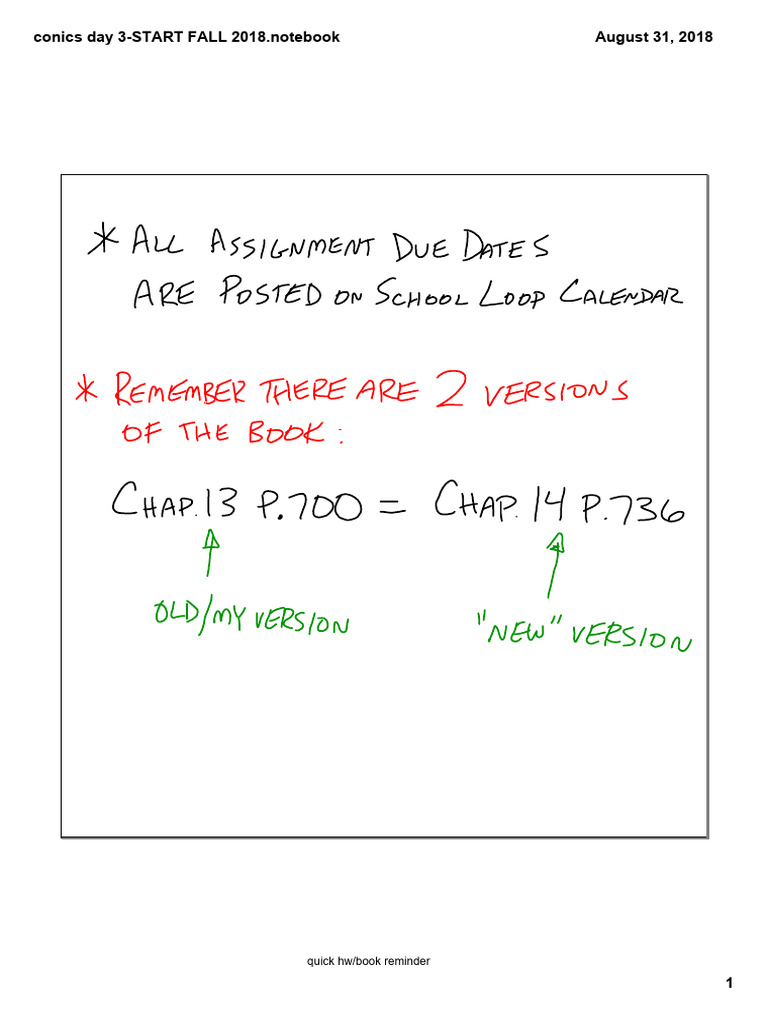 conics day 3-START FALL 2018.notebook August 31, 2018
* ALL ASSIGNMENT DUE DATES
ARE POSTED ON SCHOOL LOOP CALENDAR
* REMEMBER THERE ARE 2 VERSIONS
OF THE BOOK:
CHAP. 13 P.700 = CHAP. 14 P.736
OLD/MY VERSION "NEW" VERSION
quick hw/book reminder
1